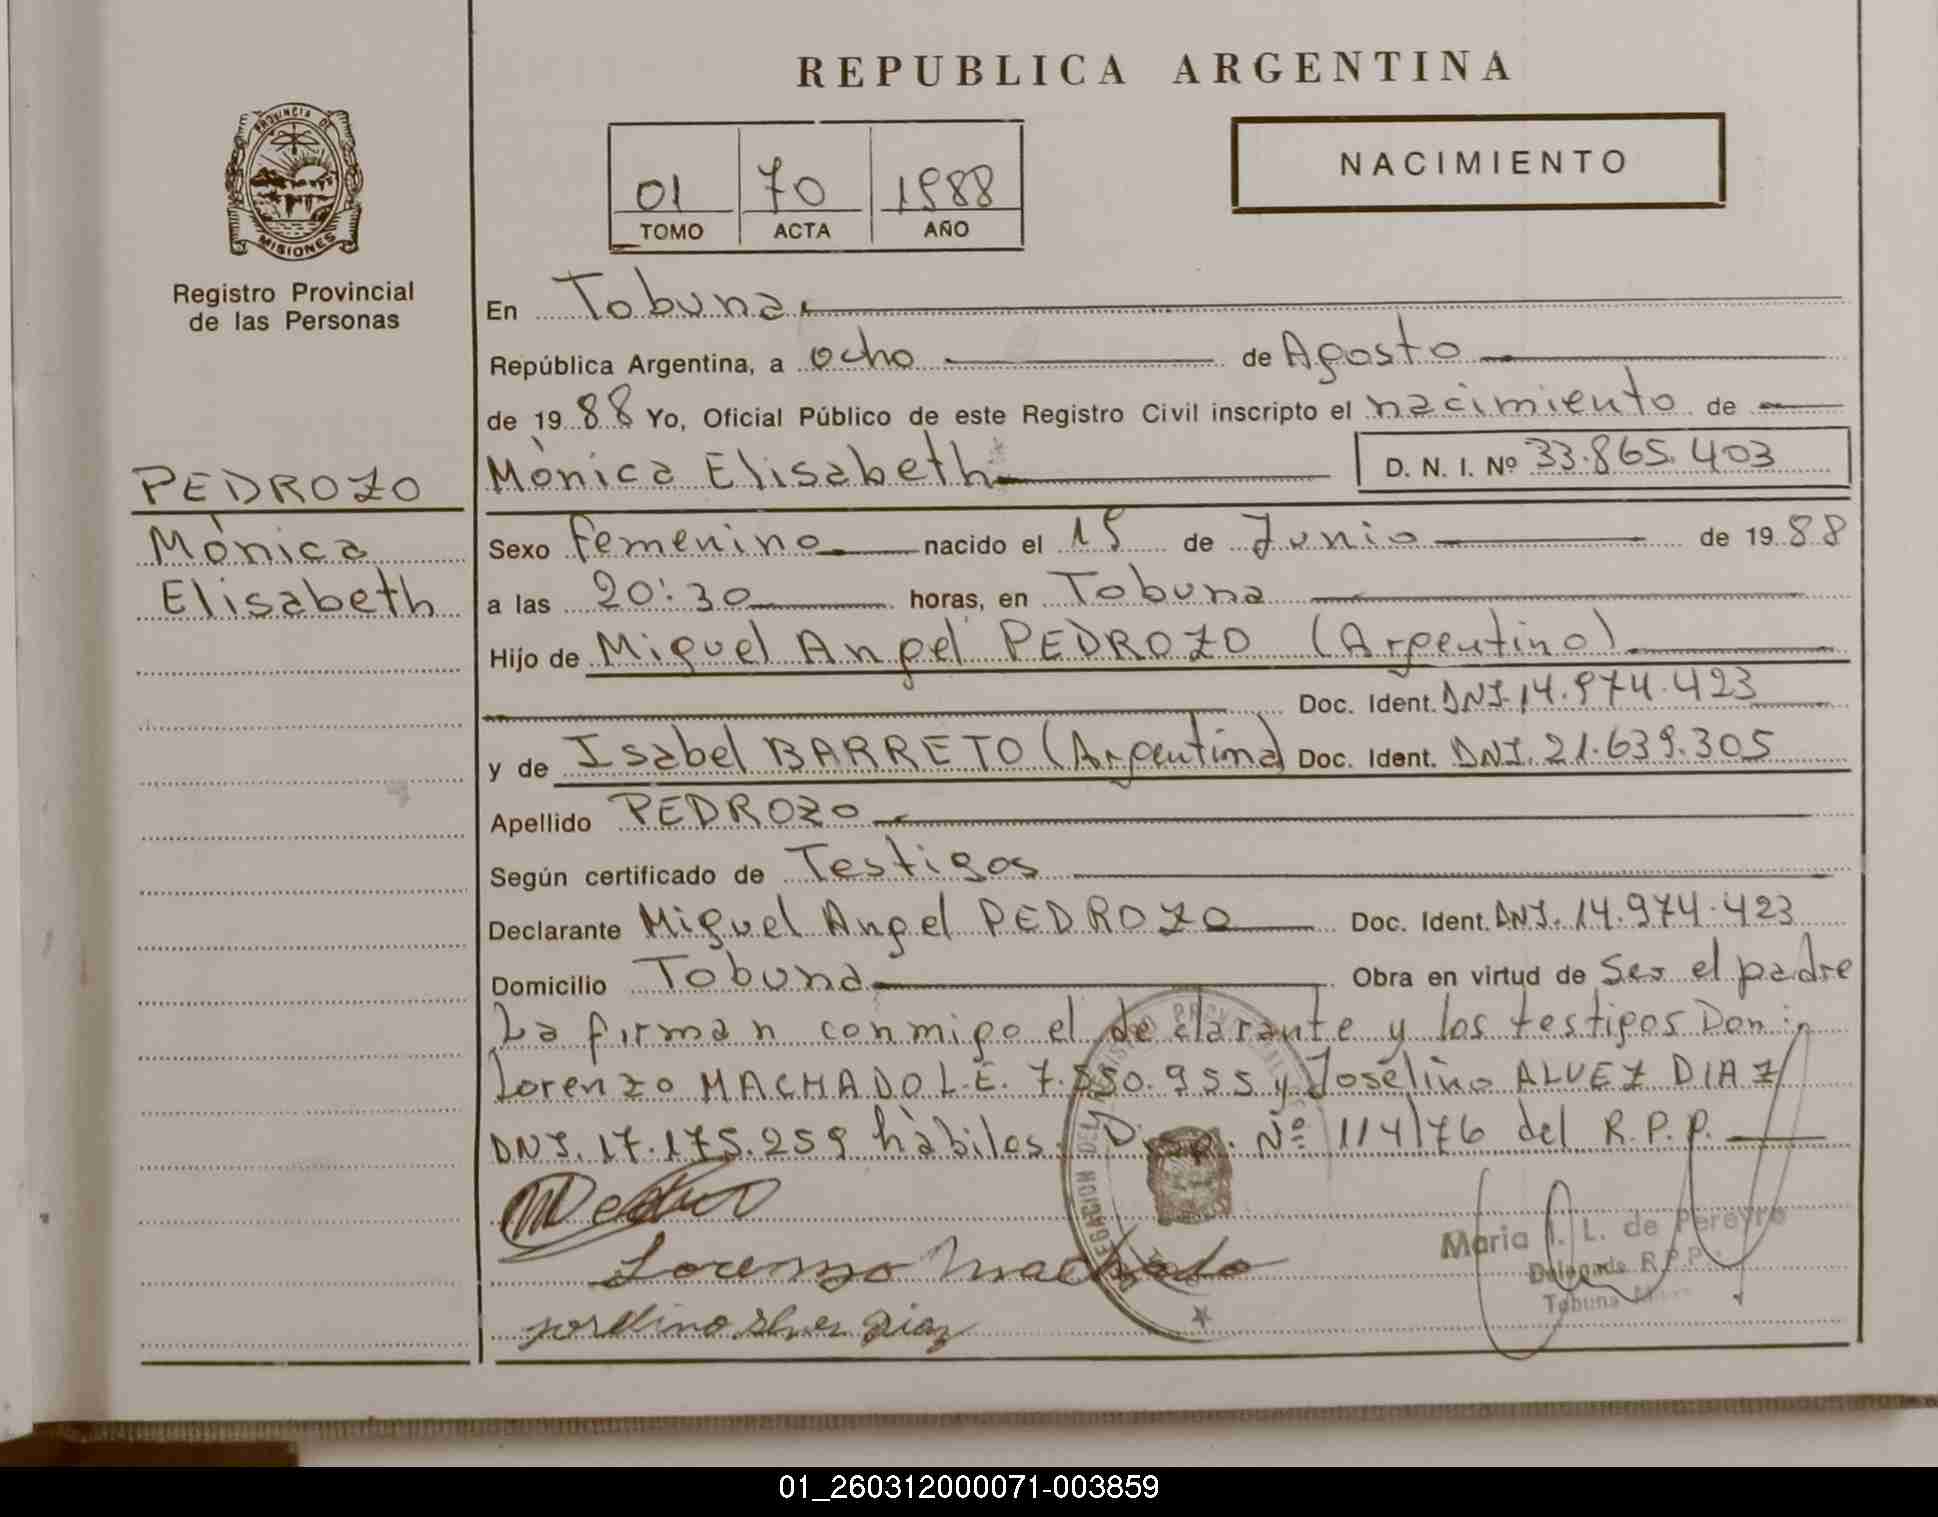 REPUBLICA ARGENTINA
PROVINCIA DE
MISIONES
Registro Provincial
de las Personas
01 70 1988
TOMO ACTA AÑO
NACIMIENTO
PEDROZO
Mónica
Elisabeth
En Tobuna
República Argentina, a ocho de Agosto
de 1988 Yo, Oficial Público de este Registro Civil inscripto el nacimiento de
Mónica Elisabeth D. N. I. Nº 33.865.403
Sexo femenino nacido el 15 de Junio de 1988
a las 20:30 horas, en Tobuna
Hijo de Miguel Angel PEDROZO (Argentino)
Doc. Ident. DNI. 14.974.423
y de Isabel BARRETO (Argentina) Doc. Ident. DNI. 21.639.305
Apellido PEDROZO
Según certificado de Testigos
Declarante Miguel Angel PEDROZO Doc. Ident. DNI. 14.974.423
Domicilio Tobuna Obra en virtud de Ser el padre
La firman conmigo el declarante y los testigos Don:
Lorenzo MACHADO L.E. 7.550.955 y Joselino ALVEZ DIAZ
DNI. 17.175.259 hábiles. Disp. Nº 114/76 del R.P.P.
Lorenzo Machado
Maria I. L. de Pereyra
Delegada R.P.P.
Tobuna
01_260312000071-003859